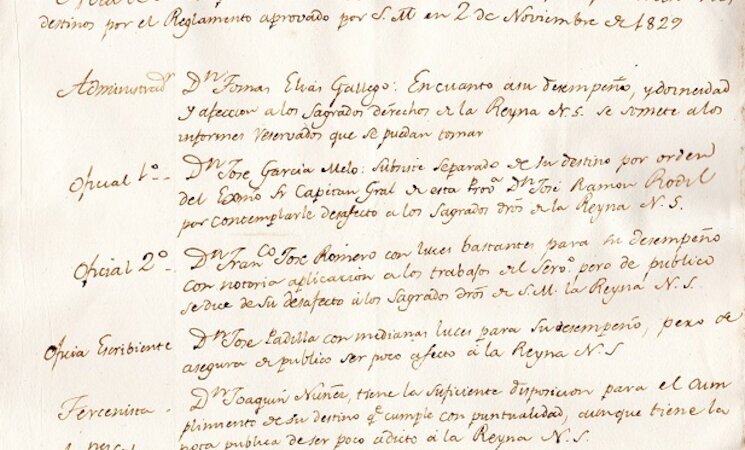 destinos por el Reglamento aprovado por S. M en 2 de Noviembre de 1829
Administrador Dn Tomas Elias Gallego: En cuanto a su desempeño, y doneidad
y afeccion a los Sagrados derechos de la Reyna N. S. se somete a los
informes reservados que se puedan tomar
Oficial 1º - Dn Jose Garcia Melo: separado de su destino por orden
del Exmo Sr Capitan Gral de esta Prova Dn José Ramon Rodil
por contemplarle desafecto a los Sagrados dros de la Reyna N. S.
Oficial 2º - Dn Franco Jose Romero con luces bastantes, para su desempeño
con notoria aplicacion a los trabajos del Servo. pero de publico
se dice de su desafecto a los Sagrados dros de S. M. la Reyna N. S.
Oficial Escribiente Dn Jose Padilla con medianas luces para su desempeño, pero se
asegura de publico ser poco afecto a la Reyna N. S
Tercenista - Dn Joaquin Nuñez, tiene la suficiente disposicion para el cum
plimiento de su destino qe cumple con puntualidad, aunque tiene la
nota publica de ser poco adicto á la Reyna N. S.